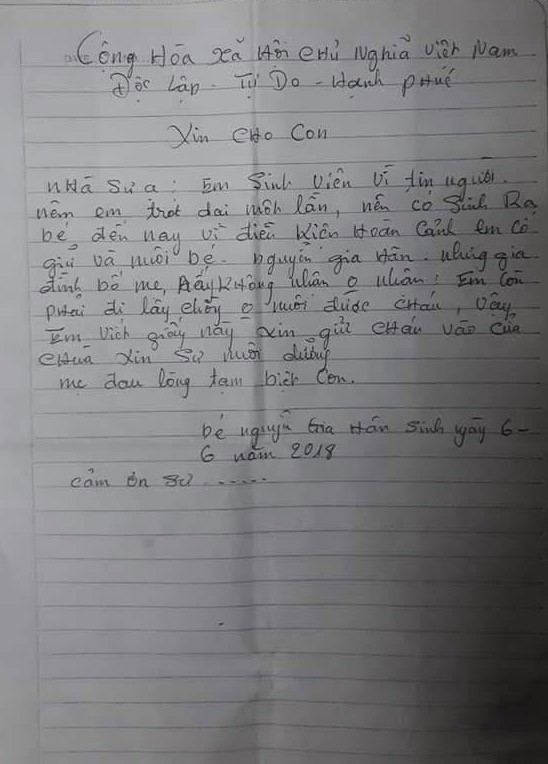 Cộng Hòa Xã Hội Chủ Nghiã Việt Nam
Độc Lập - Tự Do - Hạnh phúc
Xin Cho Con
nhà Sư ạ: Em Sinh Viên Vì tin người.
nêm em trót dại một lần, nên có Sinh Ra
bé, đến nay vì điều kiên Hoàn Cảnh em cố
giữ và nuôi bé. nguyễn gia Hân. nhưng gia
đình bố mẹ, Không nhân o nhân: Em còn
phải đi lấy chồng o nuôi được cháu, vậy
Em Viết giấy này xin gửi cháu vào cửa
chùa xin Sư nuôi dưỡng
mẹ đau lòng tạm biệt Con.
bé nguyễn Gia Hân Sinh ngày 6-
6 năm 2018
cảm ơn Sư ......